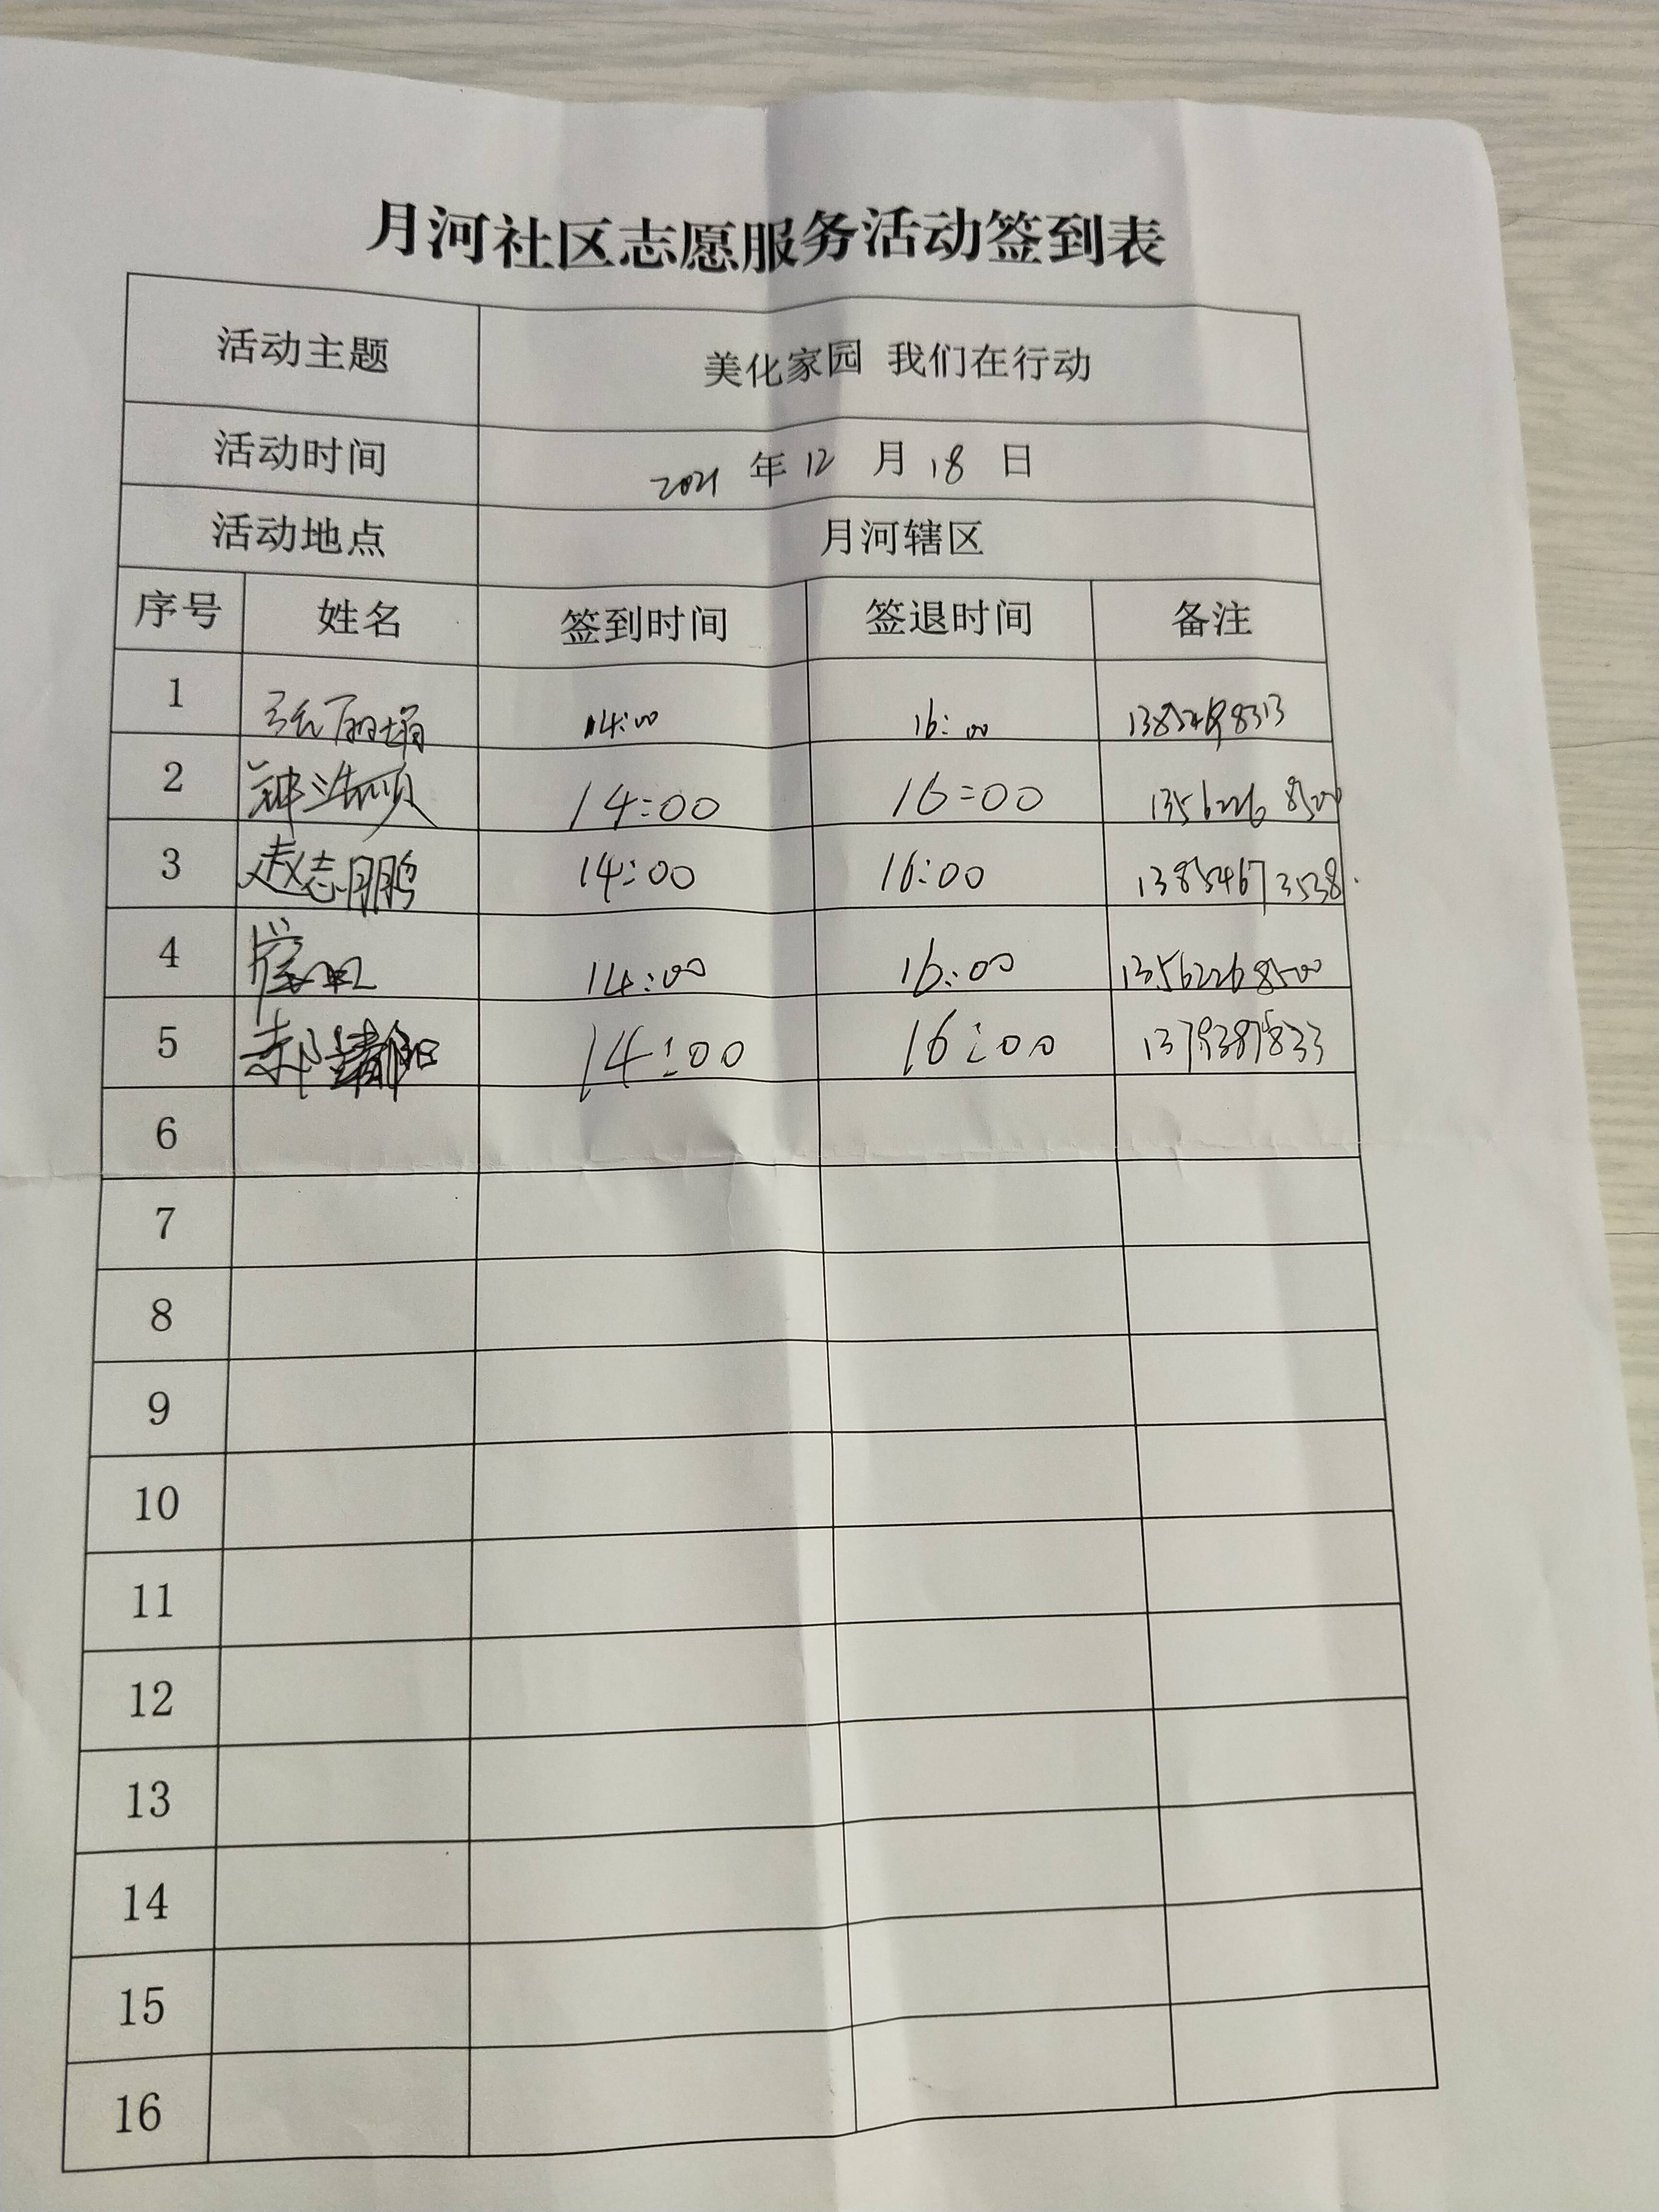 月河社区志愿服务活动签到表
活动主题 美化家园 我们在行动
活动时间 2021 年 12 月 18 日
活动地点 月河辖区
序号 姓名 签到时间 签退时间 备注
1 张丽娟 14:00 16:00
2 郑浩顺 14:00 16:00 13562268500
3 赵志鹏 14:00 16:00 13854673538
4 14:00 16:00 13562268500
5 郝靖阳 14:00 16:00
6
7
8
9
10
11
12
13
14
15
16